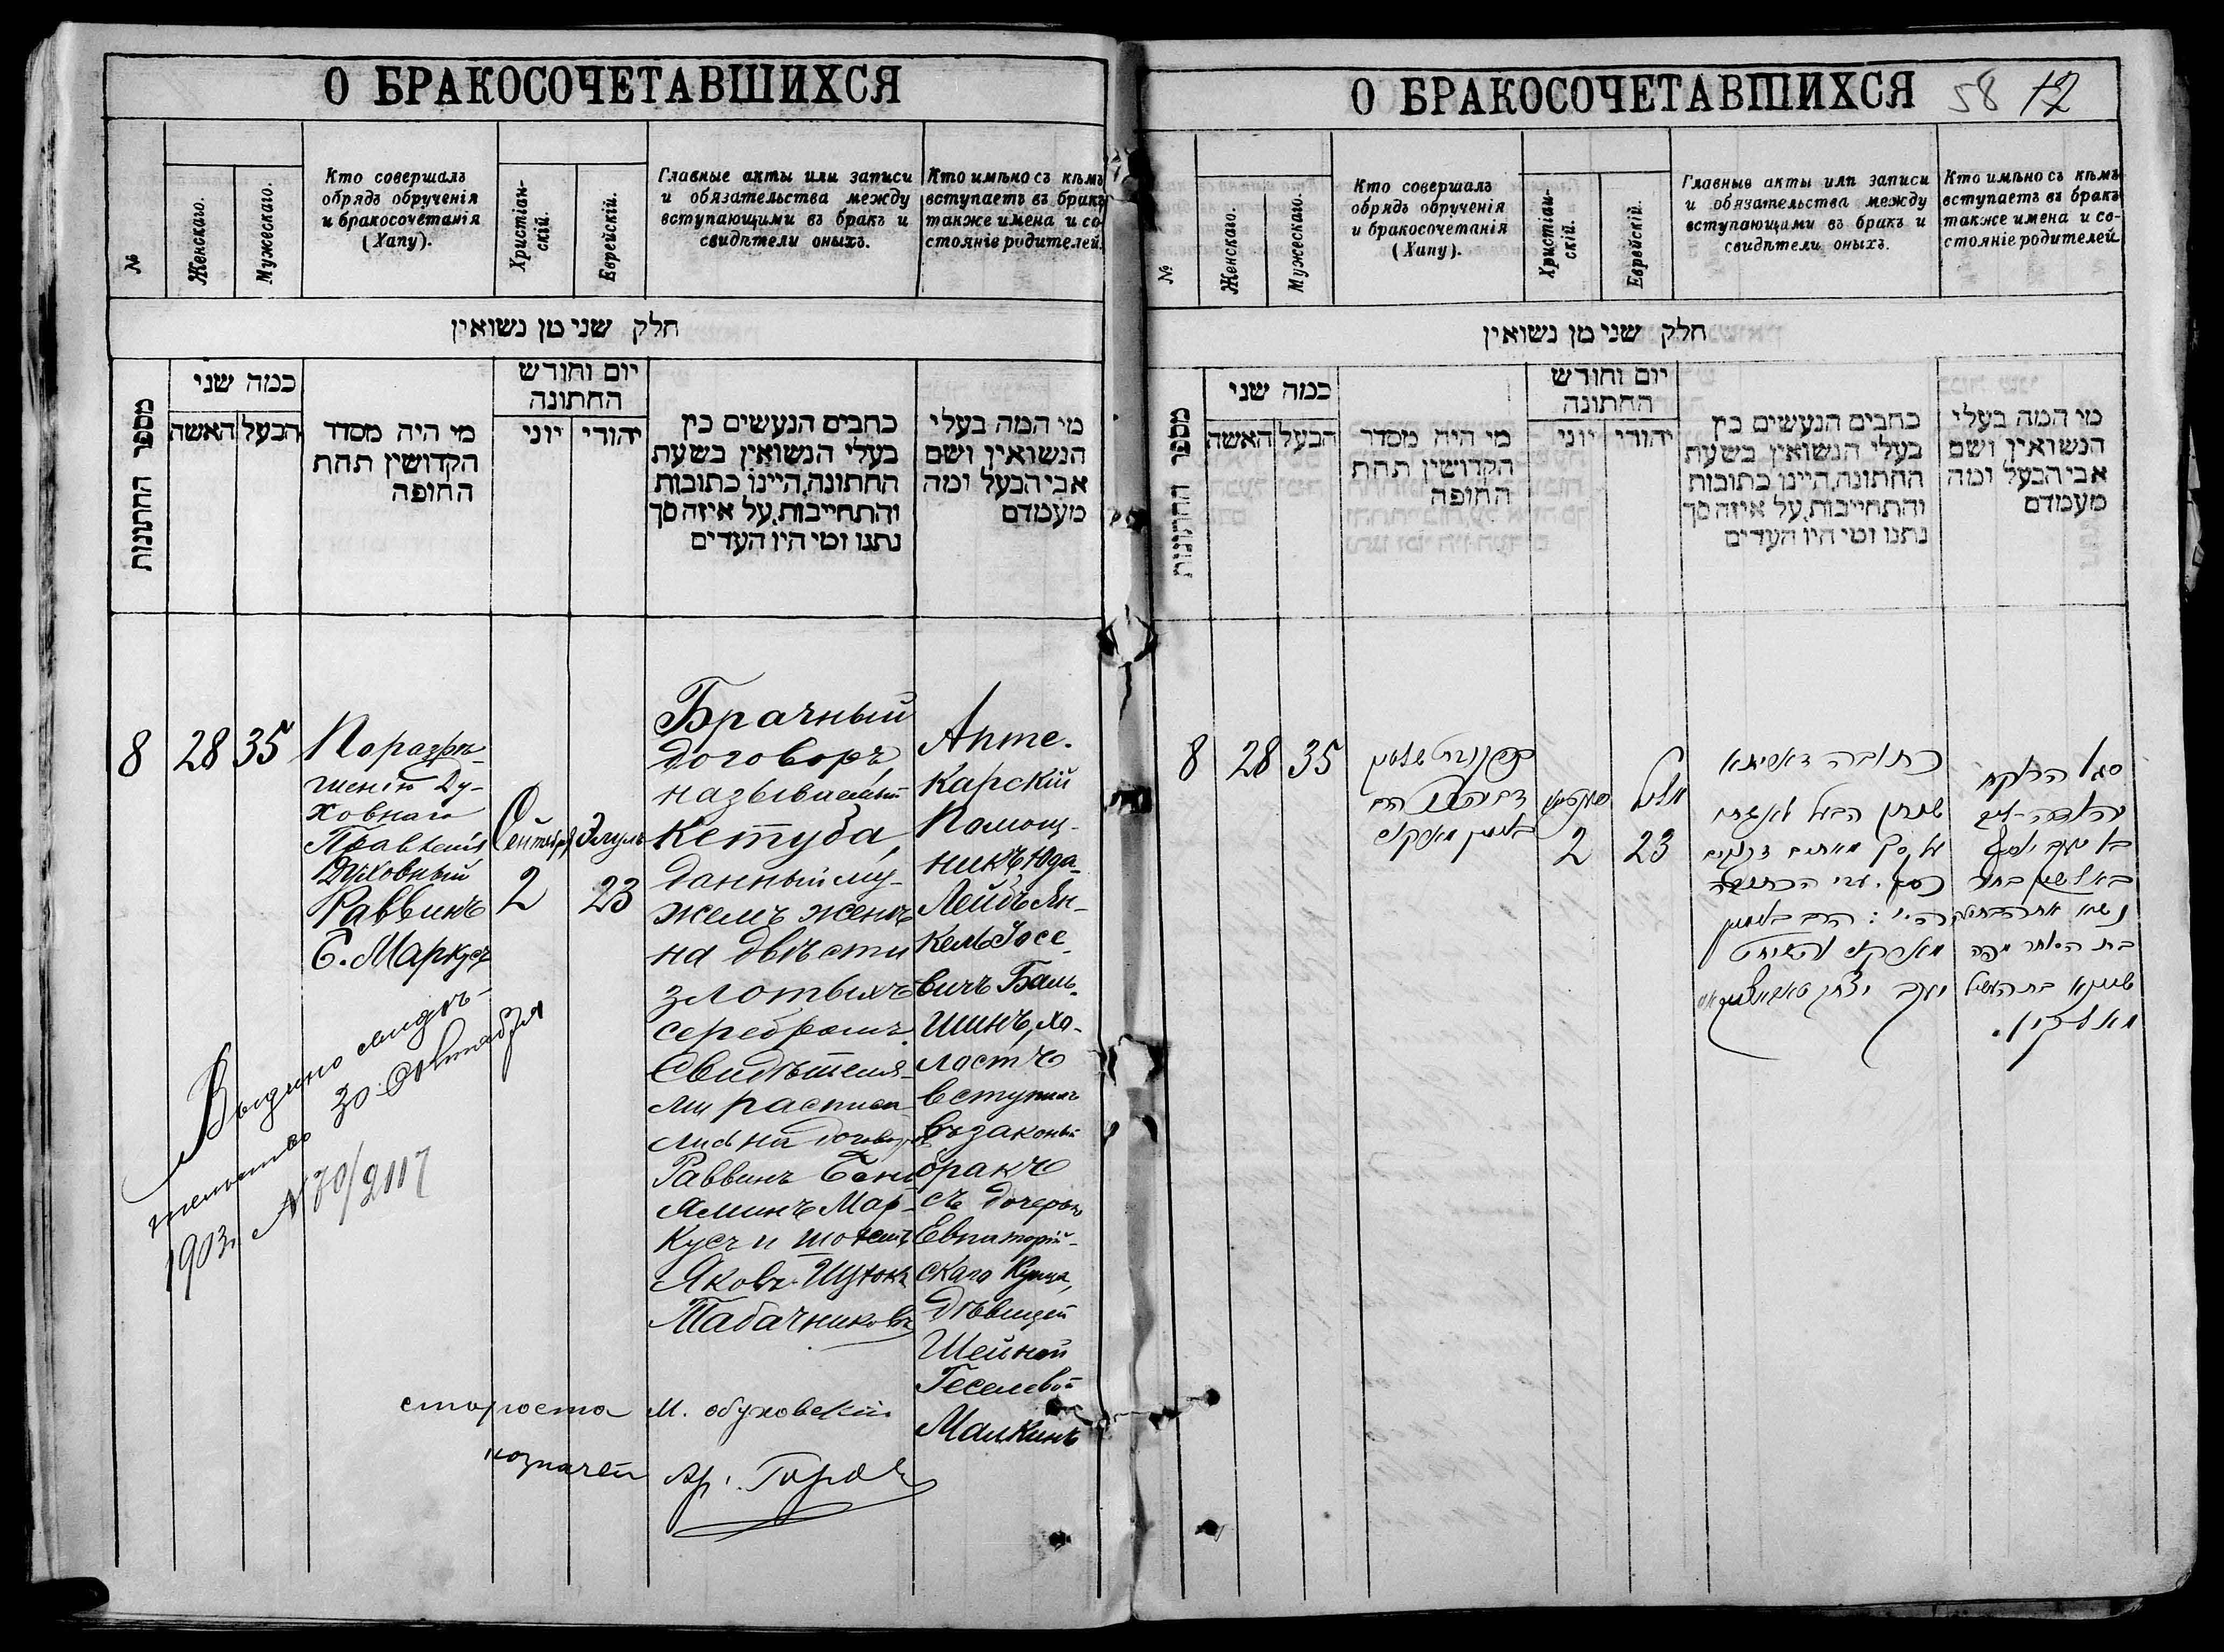 О БРАКОСОЧЕТАВШИХСЯ
№
Женскаго.
Мужескаго.
Кто совершалъ
обрядъ обрученія
и бракосочетанія
(Хапу).
Христіан-
скій.
Еврейскій.
Главные акты или записи
и обязательства между
вступающими въ бракъ и
свидѣтели оныхъ.
Кто имѣно съ кѣмъ
вступаетъ въ бракъ
также имена и со-
стояніе родителей.
חלק שני מן נשואין
מספר החתונות
כמה שני
האשה
הבעל
מי היה מסדר
הקדושין תחת
החופה
יום וחודש
החתונה
יוני
יהודי
כתבים הנעשים בין
בעלי הנשואין בשעת
החתונה, היינו כתובות
והתחייבות, על איזה סך
נתנו ומי היו העדים
מי המה בעלי
הנשואין ושם
אבי הבעל ומה
מעמדם
8
28
35
По разрѣ-
шенію Ду-
ховнаго
Правленія
Духовный
Раввинъ
Б. Маркусъ
Сентября
2
Элулъ
23
Брачный
договоръ,
называемый
кетуба,
данный му-
жемъ женѣ
на двѣсти
злотыхъ
серебромъ.
Свидѣтеля-
ми расписа
лись на договорѣ
Раввинъ Бени
яминъ Мар-
кусъ и шохетъ
Яковъ-Ицхокъ
Табачниковъ
Апте-
карскій
Помощ-
никъ Юда-
Лейбъ Ян-
кель-Іосе-
вичъ Баль-
шинъ, хо-
лостъ
вступилъ
въ законый
бракъ
съ дочерью
Евпаторій-
скаго Купца,
дѣвицей
Шейной
Геселевой
Малкинъ
Выдано свидѣ-
тельство 30 Октября
1903 г. № 70/2117
староста М. Обуховскій
казначей Ар. Горов
О БРАКОСОЧЕТАВШИХСЯ
58 12
№
Женскаго.
Мужескаго.
Кто совершалъ
обрядъ обрученія
и бракосочетанія
(Хапу).
Христіан-
скій.
Еврейскій.
Главные акты или записи
и обязательства между
вступающими въ бракъ и
свидѣтели оныхъ.
Кто имѣно съ кѣмъ
вступаетъ въ бракъ
также имена и со-
стояніе родителей
חלק שני מן נשואין
מספר החתונות
כמה שני
האשה
הבעל
מי היה מסדר
הקדושין תחת
החופה
יום וחודש
החתונה
יוני
יהודי
כתבים הנעשים בין
בעלי הנשואין בשעת
החתונה, היינו כתובות
והתחייבות, על איזה סך
נתנו ומי היו העדים
מי המה בעלי
הנשואין ושם
אבי הבעל ומה
מעמדם
8
28
35
הרב
בנימין מארקוס
2
אלול
23
כתובה
שנתן הבעל לאשתו
על סך מאתים זהובים
כסף. עדי הכתובה
היו: הרב בנימין
מארקוס והשוחט
יעקב יצחק
סגן הרוקח
יהודה-ליב
בן יעקב יוסף
נשא את הבתולה
בת הסוחר מפה
שיינא בת העשיל
מאלקין.